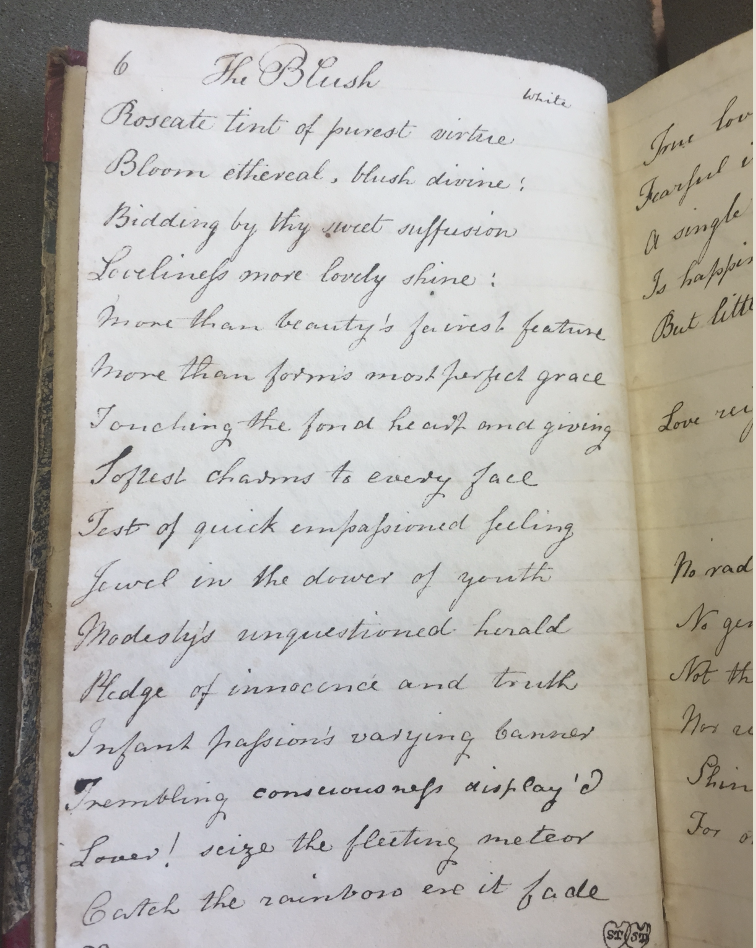 6 The Blush
White
Roseate tint of purest virtue
Bloom ethereal, blush divine!
Bidding by thy sweet suffusion
Loveliness more lovely shine!
More than beauty's fairest feature
More than form's most perfect grace
Touching the fond heart and giving
Softest charms to every face
Test of quick empassioned feeling
Jewel in the dower of youth
Modesty's unquestioned herald
Pledge of innocence and truth
Infant passion's varying banner
Trembling consciousness display'd
Lover! seize the fleeting meteor
Catch the rainbow ere it fade
ST ST
True lov
Fearful i
A single
Is happin
But littl
Love re
No rad
No gen
Not th
Nor
Shin
For o